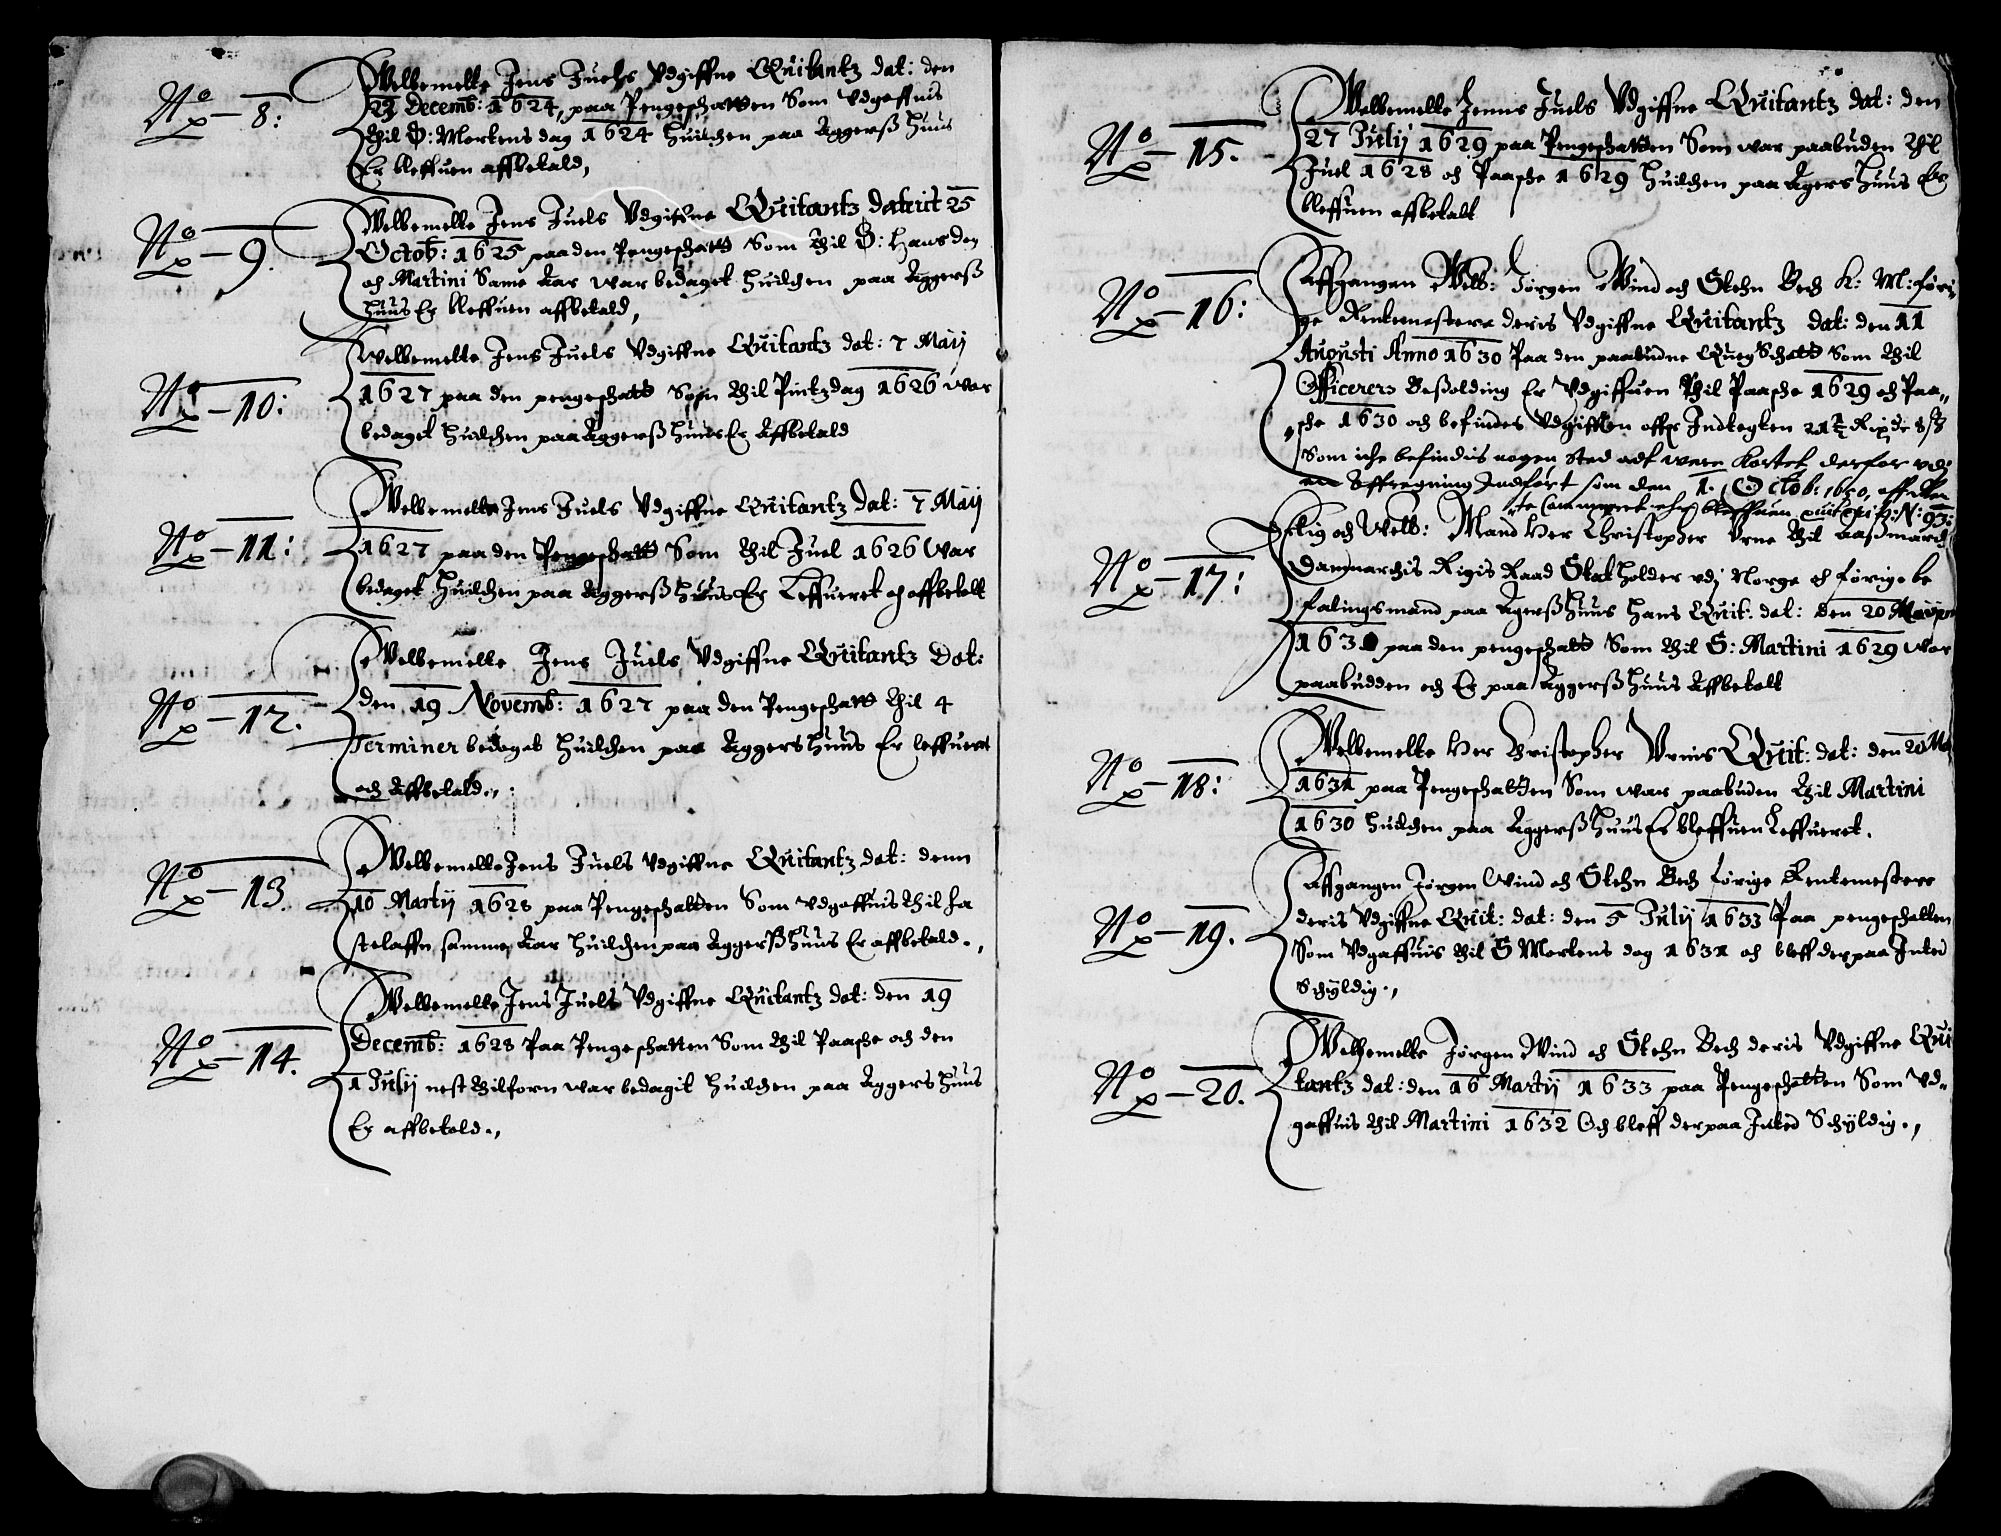 No 8:
Welbemelte Jens Juels Vdgiffne Quitantz dat: den
22 Decemb: 1624, paa Pengeschatten Som Vdgaffuis
thil S: Mortens dag 1624 Huilchen paa Aggerß Huus
Er bleffuen affbetald,
No 9.
Welbemelte Jens Juels Vdgifne Quitantz daterit 25
Octob: 1625 paa den Pengeschatt Som thil S: Hans den
och Martini Same Aar war bedaget Huilchen paa Aggerß
Huus Er bleffuen affbetald,
No 10:
Welbemelte Jens Juels Vdgiffne Quitantz dat: 7 Maij
1627 paa den pengeschatt Som thil Pintzdag 1626 war
bedaget Huilchen paa Aggerß Huus Er Affbetald
No 11:
Welbemelte Jens Juels Vdgiffne Quitantz dat: 7 Maij
1627 paa den Pengeschatt Som thil Juel 1626 War
bedaget Huilchen paa Aggerß Huus Er Leffueret och affbetalt
No 12.
Welbemelte Jens Juels Vdgiffne Quitantz Dat:
den 19 Novemb: 1627 paa den Pengeschatt thil 4
Terminer bedaget Huilchen paa Aggers Huus Er leffueret
och Affbetald.,
No 13
Welbemelte Jens Juels Vdgiffne Quitantz dat: denn
10 Martij 1628 paa Pengeschatten Som Vdgaffuis thil fa
stelaffn samme Aar Huilchen paa Aggerß Huus Er affbetald.,
No 14.
Welbemelte Jens Juels Vdgiffne Quitantz dat: den 19
Decemb: 1628 Paa Pengeschatten Som thil Paasche och den
1 Julij nest thilforn war bedagit Huilchen paa Aggers Huus
Er affbetald.,
No 15.
Welbemelte Jenns Juels Vdgiffne Quitantz dat: den
27 Julij 1629 paa Pengeschatten Som war paabuden thil
Juel 1628 och Paasche 1629 Huilchen paa Agers Huus Er
bleffuen affbetalt
No 16:
Affgangen Welb: Jørgen Wind och Stehn Bech K: M: føri,
ge Rentemestere deris Vdgiffne Quitantz dat: den 11
Augusti Anno 1630 Paa den paabudne Queg Schatt Som thil
Officerers Besolding Er Vdgiffuen thil Paasche 1629 och Paa,,
sche 1630 och befindes Vdgifften offr Indtegten Rixdr
Som iche befindis nogen sted adt were Kortet derfor vdj
en Beffregning Indført som den 1. Octob: 1650,
No 17:
Selig och Welb: Mand Her Christopher Vrne thil Aaßmarch
Dannmarchis Rigis Raad Statholder vdj Norge och førige be
falingsmand paa Agerß Huus Hans Quit: dat: den 20
163 paa den pengeschatt Som thil S: Martini 1629 war
paabudden och Er paa Aggerß Huus Affbetalt
No 18:
Welbemelte Her Christopher Vrnis Quit: dat: den 20
1631 paa Pengeschatten Som war paabuden thil Martini
1630 Huilchen paa Aggerß Huus Er bleffuen Leffueret.
No 19.
Affgangen Jørgen Wind och Stehn Bech førige Rentemestere
deris Vdgiffne Quit: dat: den 5 Julij 1633 Paa pengeschatten
Som Vdgaffuis thil S Mortens dag 1631 och bleff derpaa Inted
Schÿldig.,
No 20.
Welbemelte Jørgen Wind och Stehn Bech deris Vdgiffne Qui
tantz dat: den 16 Martij 1633 paa Pengeschatten Som Vd-
gaffuis thil Martini 1632 Och bleff derpaa Inted Schÿldig.,